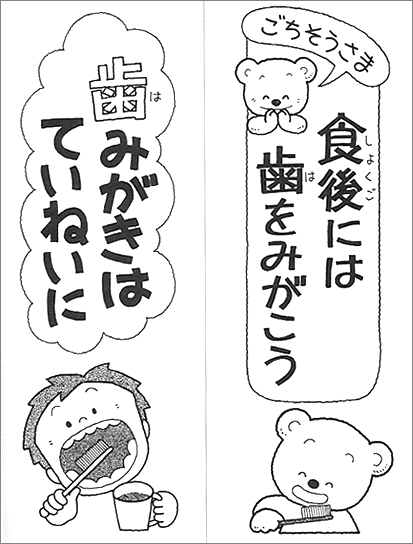 ごちそうさま
食後には
しょくご
歯をみがこう
は
歯みがきは
は
ていねいに